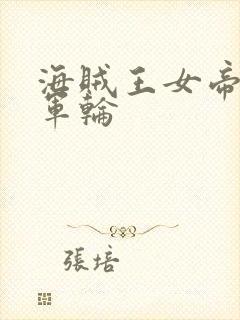 海賊王女帝
軍輪
張培